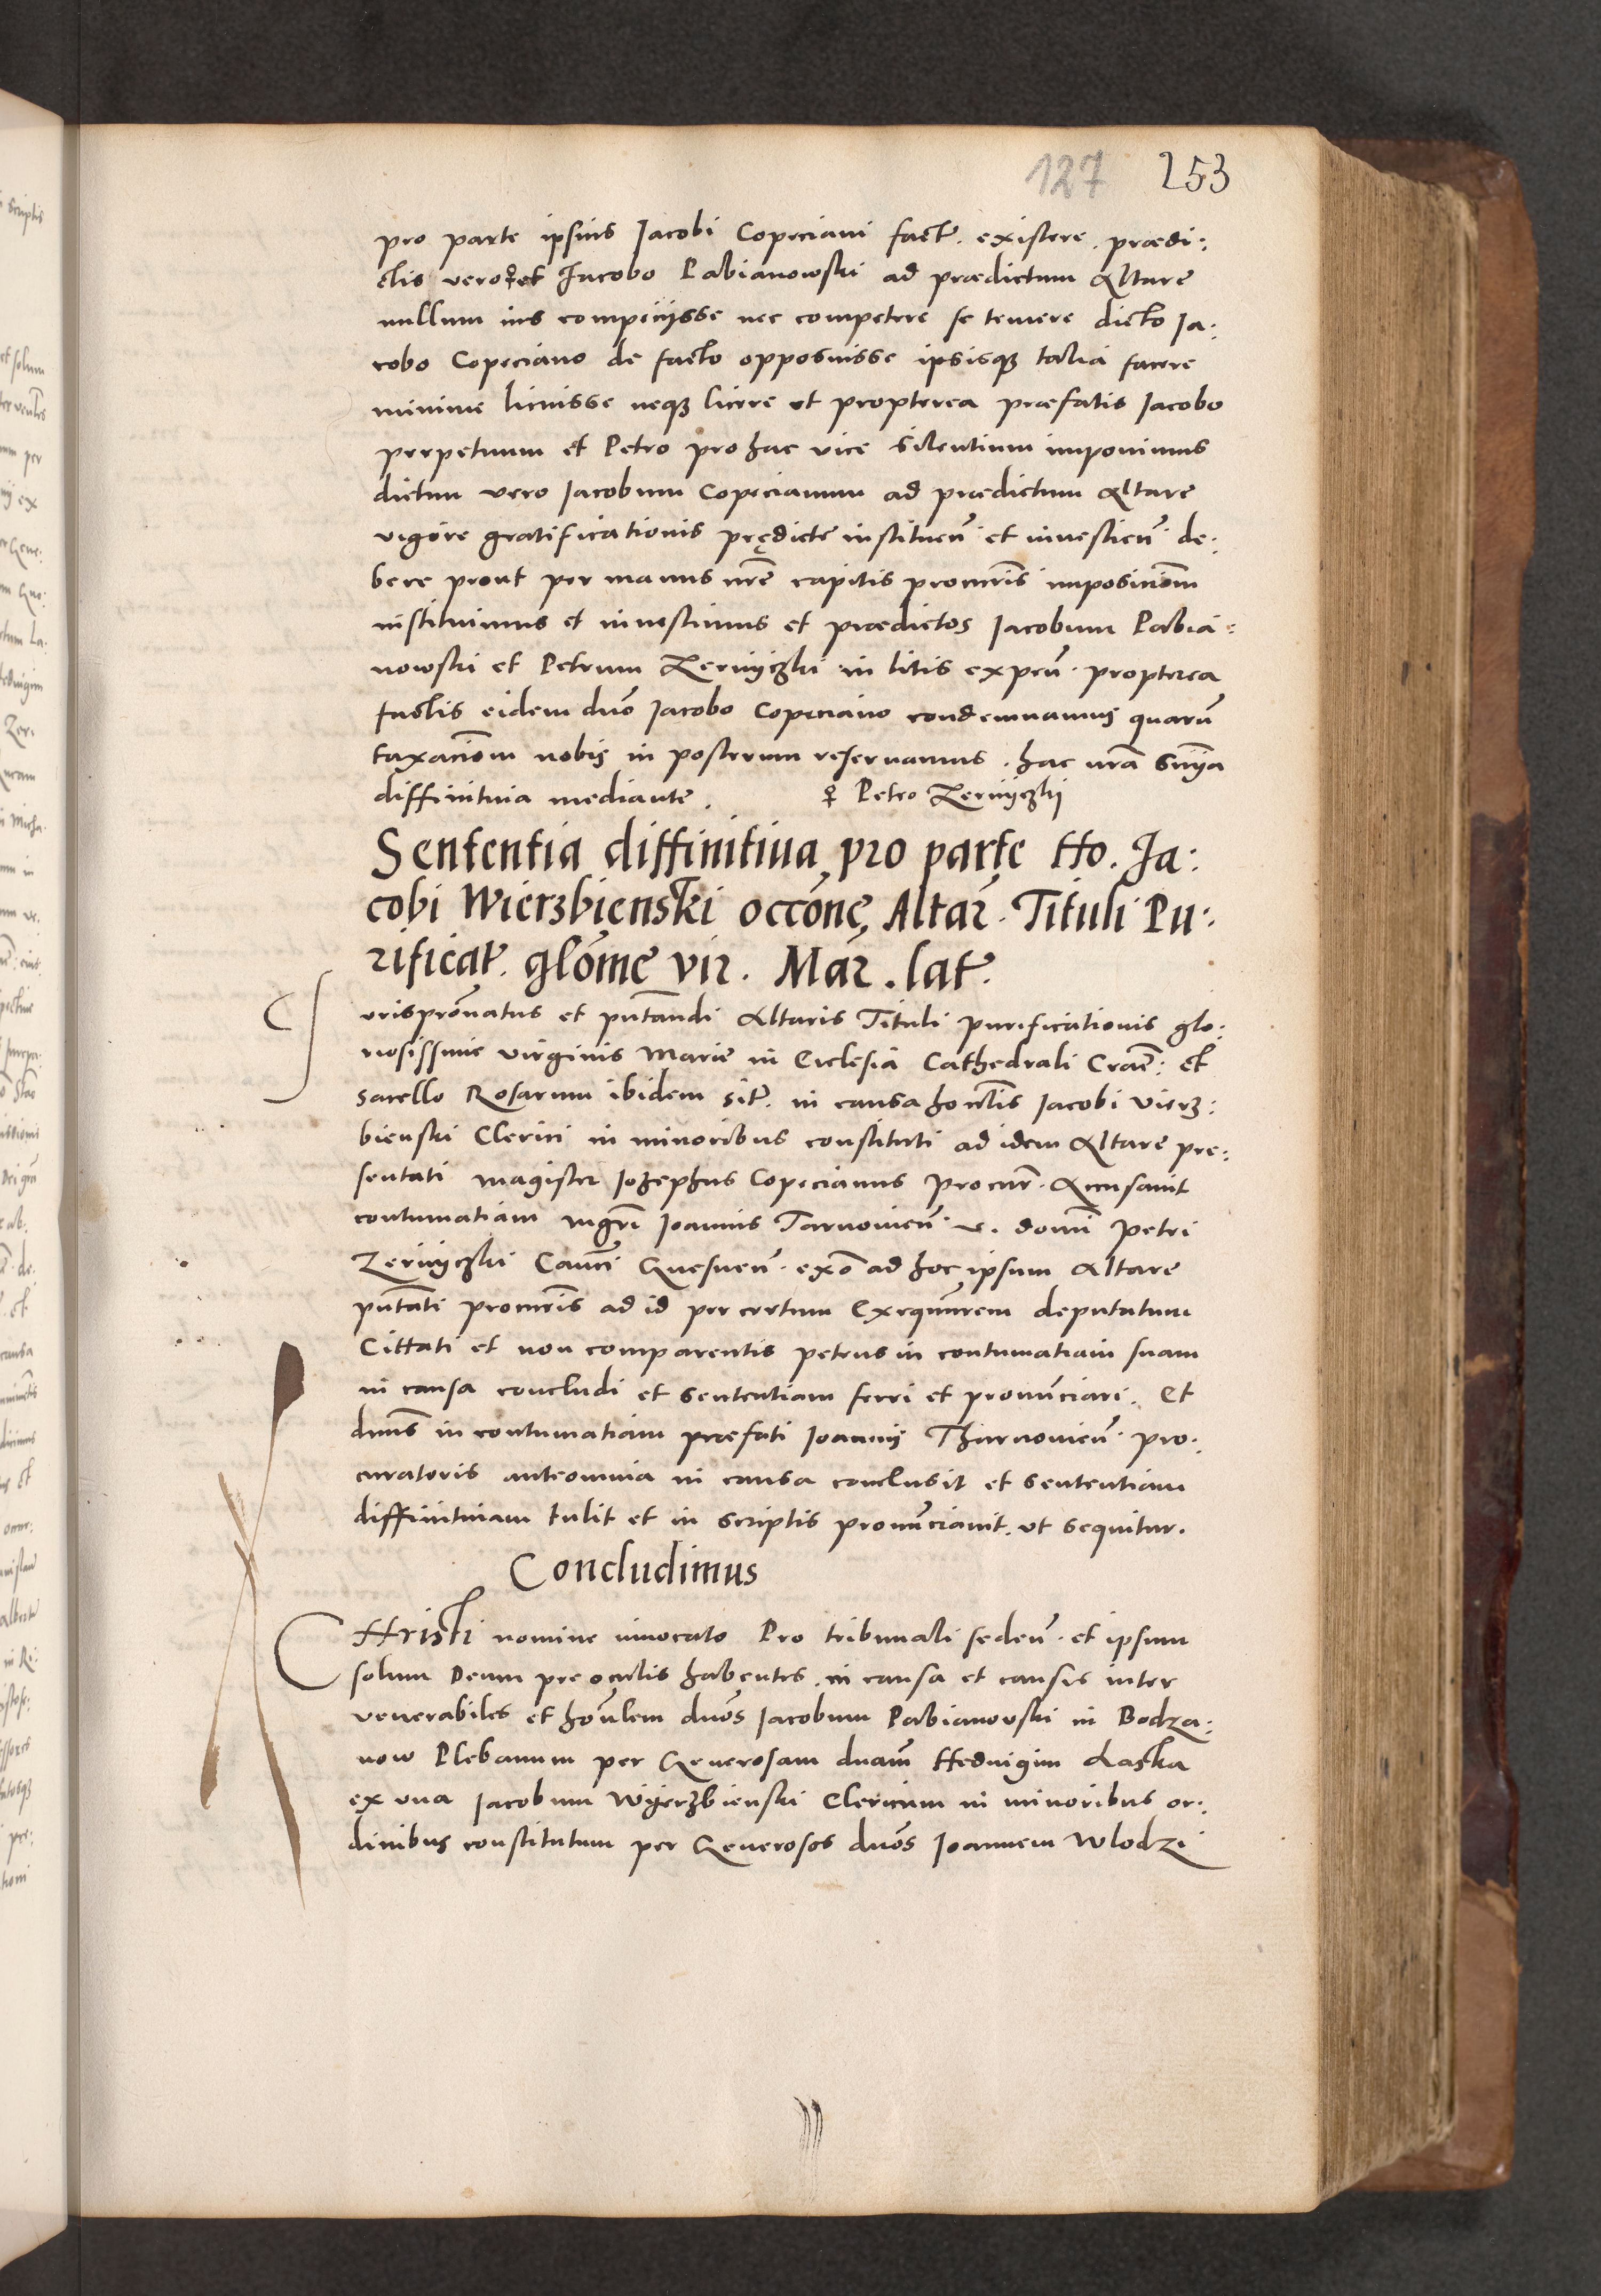 127 253
pro parte ipsius Jacobi Copeciani fact. existere. prædi:
ctis vero ♀ et Jacobo Pabianowski ad prædictum Altare
nullum ius competiisse nec competere se temere dicto Ja:
cobo Copeciano de facto opposuisse ipsisq talia facere
minime licuisse neq licere et propterea præfatis Jacobo
perpetuum et Petro pro hac vice silentium imponimus
dictum vero Jacobum Copecianum ad prædictum Altare
vigore gratificationis prędicte instituen̄ et inuestien̄ de:
bere prout per manus nr̄e capitis procur̄is imposiciōm
instituimus et inuestimus et prædictos Jacobum Pabia:
nowski et Petrum Zernyczki in litis expen̄. propterea
factis eidem dno Jacobo Copeciano condemnamus quarū
taxaciōm nobis in posterum reseruamus. hac nrā sn̄ia
diffinitiua mediante. ♀ Petro Zernyczkij
Sententia diffinitiua pro parte Ho. Ja:
cobi Wierzbienski occōne Altar̄. Tituli Pu:
rificat. glōme vir. Mar̄. lat.
Jurisprōnatus et pn̄tandi Altaris Tituli purificationis glo:
riosissime virginis Marie in Ecclesia Cathedrali Crac̄: et
sacello Rosarum ibidem sit. in causa hon̄tis Jacobi Vierz:
bienski Clerici in minoribus constituti ad idem Altare pre:
sentati magister Johephus Copecianus Procur̄. Accusauit
contumatiam mgr̄i Joannis Tarnouien̄. v. domi Petri
Zernyczki Canc̄i Gnesnen̄. exo ad hoc ipsum Altare
pn̄tati procur̄is ad id per certum Exequutorem deputatum
Cittati et non comparentis petens in contumatiam suam
in causa concludi et sententiam ferri et pronunciari. Et
dn̄us in contumatiam præfati Joannis Tharnouien̄. pro:
curatoris anteomnia in causa conclusit et sententiam
diffinitiuam tulit et in scriptis pronunciauit. vt sequitur.
Concludimus
CHristi nomine inuocato Pro tribunali seden̄. et ipsum
solum Deum pre oculis habentes. in causa et causis inter
venerabiles et hon̄lem dnōs Jacobum Pabianowski in Bodza:
now Plebanum per Generosam dnam Heduigim Laska
ex vna Jacobum Wyerzbienski Clericum in minoribus or:
dinibus constitutum per Generosos dnōs Joannem Wlodzi